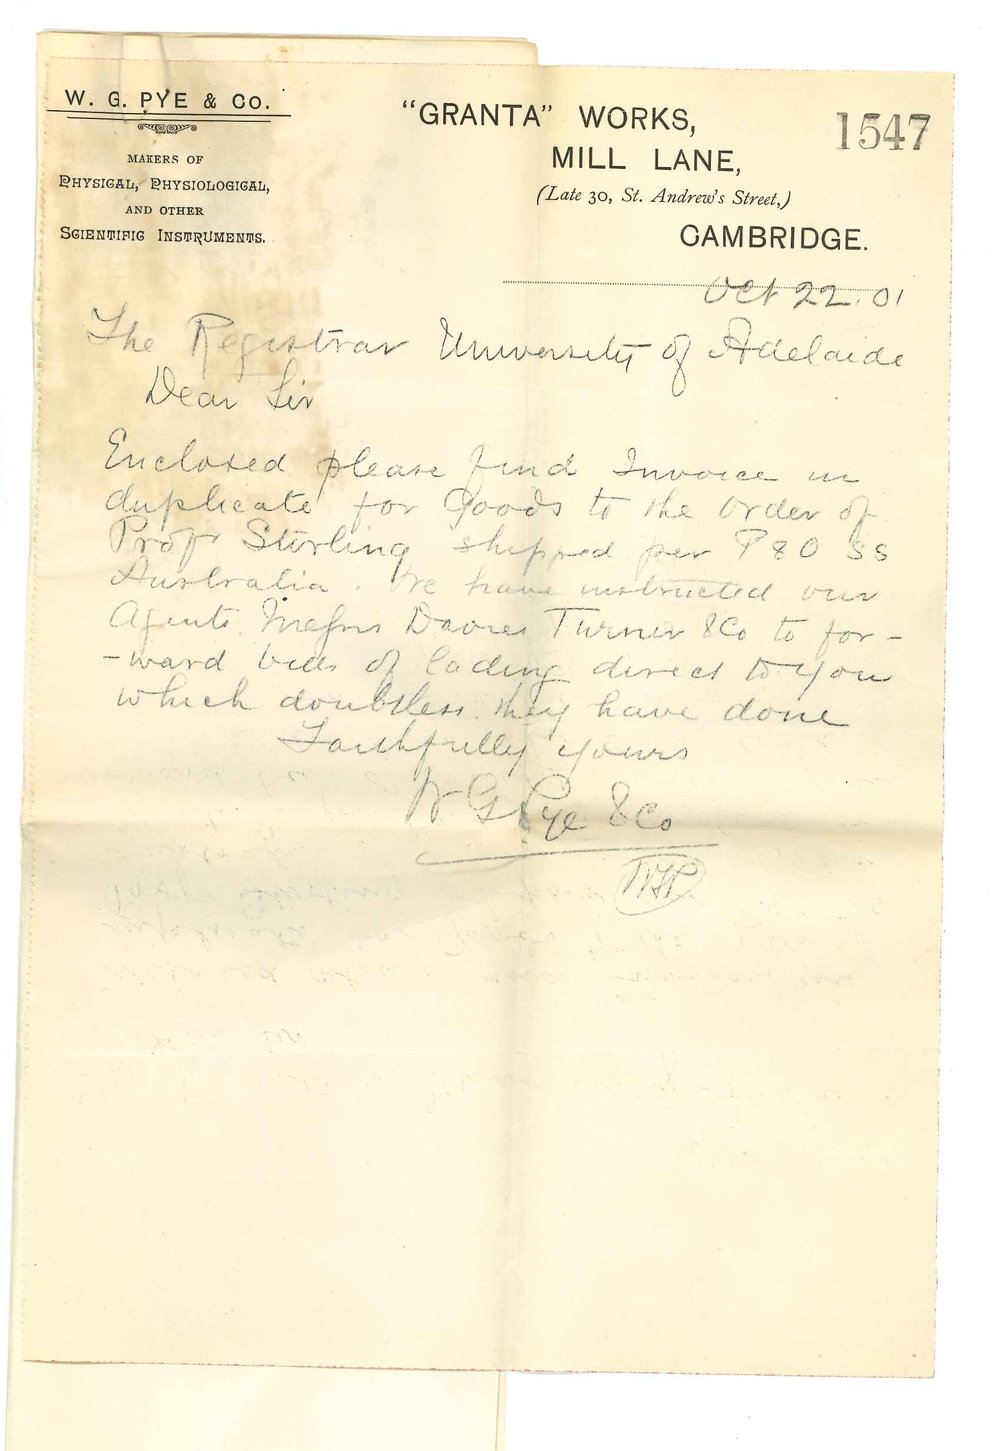 W. G. PYE & Co.
MAKERS OF
PHYSICAL, PHYSIOLOGICAL,
AND OTHER
SCIENTIFIC INSTRUMENTS.
"GRANTA" WORKS,
MILL LANE,
(Late 30, St. Andrew's Street,)
CAMBRIDGE.
1547
Oct 22. 01
The Registrar University of Adelaide
Dear Sir
Enclosed please find Invoice in
duplicate for Goods to the order of
Profr Stirling shipped per P & O SS
Australia. We have instructed our
Agents Messrs Davies Turner & Co to for-
-ward bills of lading direct to you
which doubtless they have done
Faithfully yours
W G Pye & Co